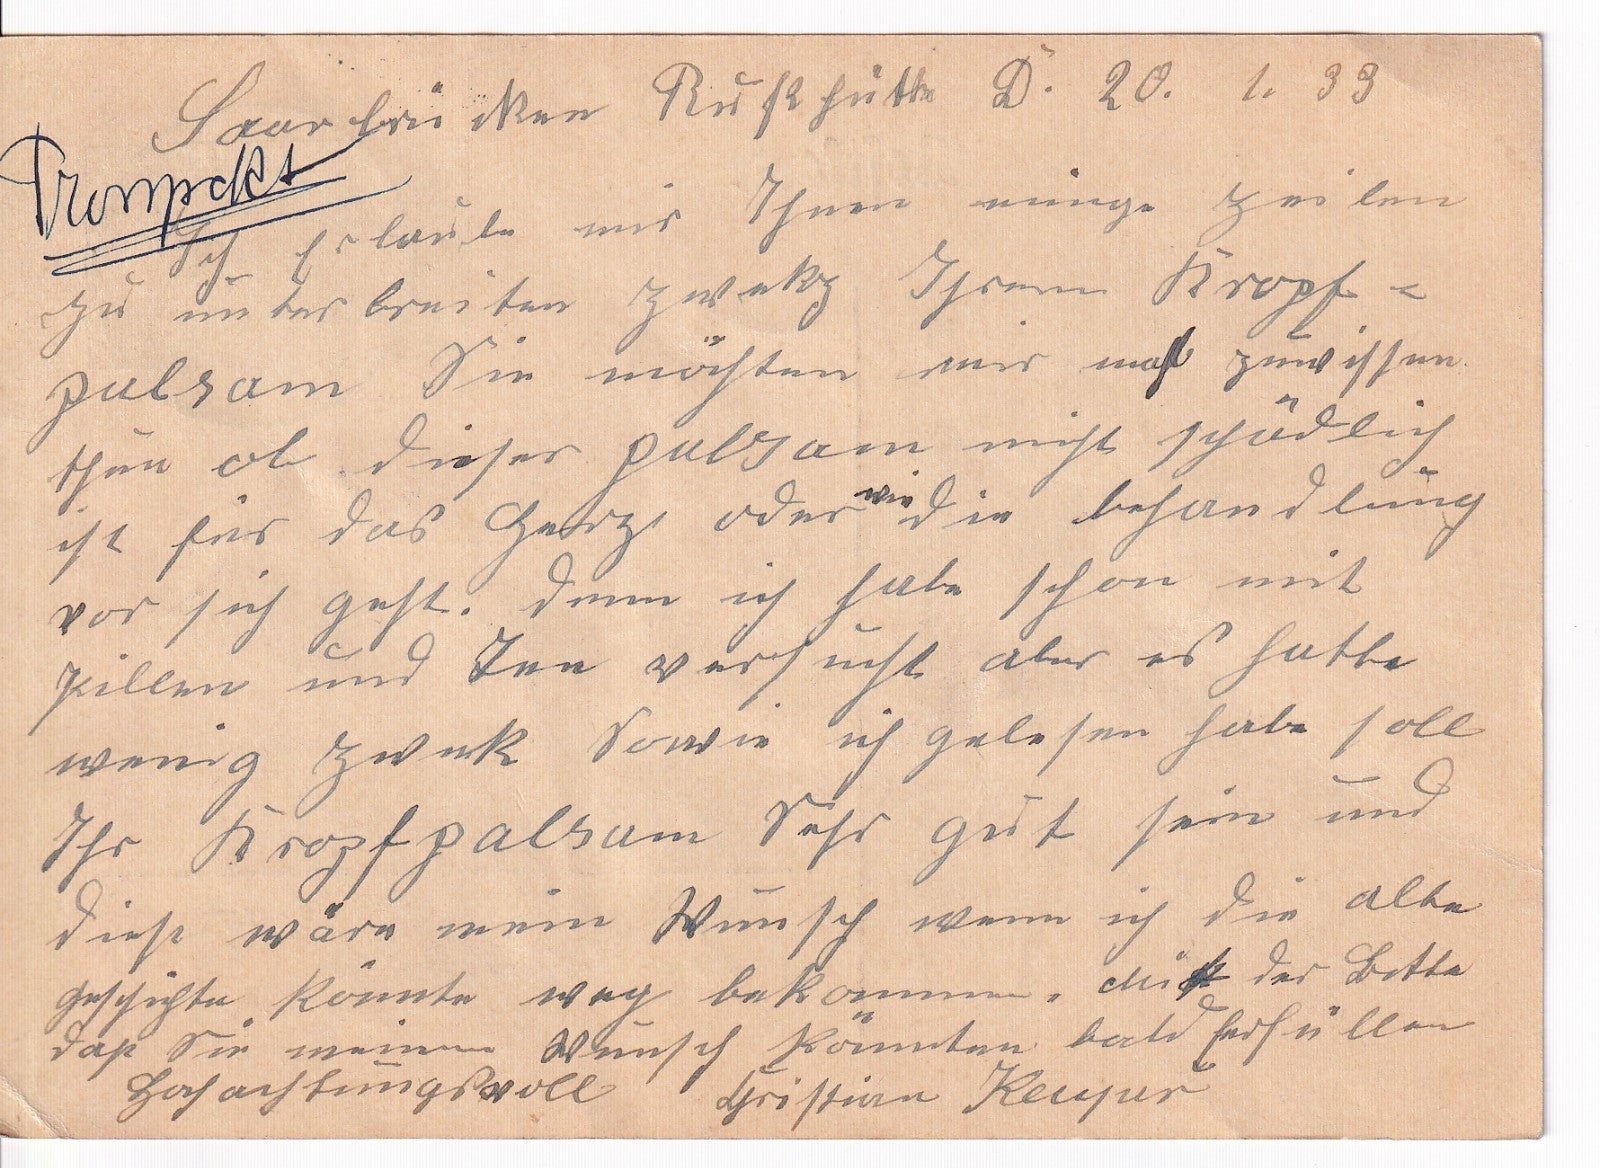 Saarbrücken Rußhütte D. 20. 1. 33
Prompckt
Ich Erlaube mir Ihnen einige zeilen
zu unterbreiten zweks Ihrem Kropf =
palsam Sie möchten mir mal zuwissen
thun ob dieser palsam nicht schädlich
ist für das Herz oder wie die behandlung
vor sich geht. denn ich habe schon mit
pillen und Tee versucht aber es hatte
wenig zwek Sowie ich gelesen habe soll
Ihr Kropfpalsam Sehr gut sein und
dieß wäre mein Wunsch wenn ich die alte
geschichte könnte weg bekommen. mit der Bitte
daß Sie meinem Wunsch könnten bald Erfüllen
Hochachtungsvoll Christian